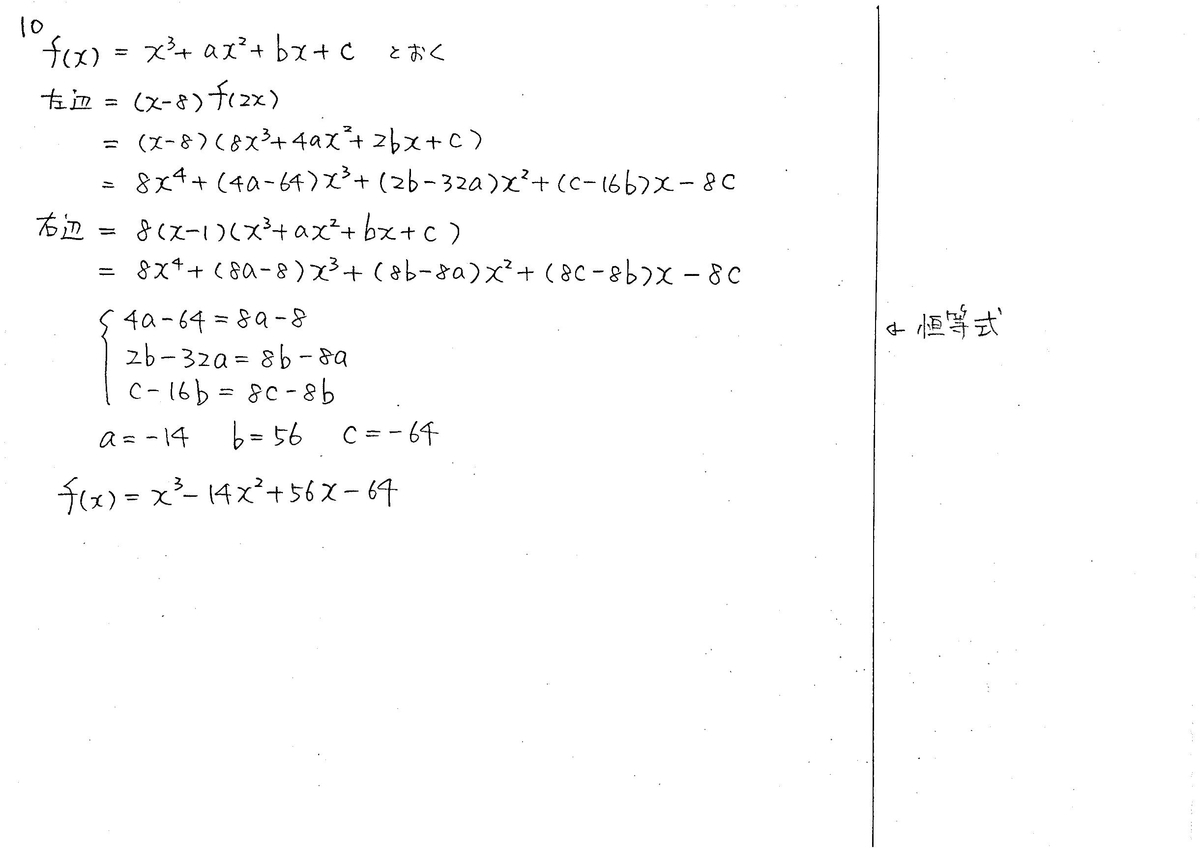 10
f(x) = x³+ ax²+ bx + c とおく
左辺 = (x-8) f(2x)
= (x-8)(8x³+4ax²+2bx+c)
= 8x⁴+(4a-64)x³+(2b-32a)x²+(c-16b)x-8c
右辺 = 8(x-1)(x³+ax²+bx+c)
= 8x⁴+(8a-8)x³+(8b-8a)x²+(8c-8b)x-8c
4a-64=8a-8
← 恒等式
2b-32a=8b-8a
c-16b=8c-8b
a=-14 b=56 c=-64
f(x)=x³-14x²+56x-64